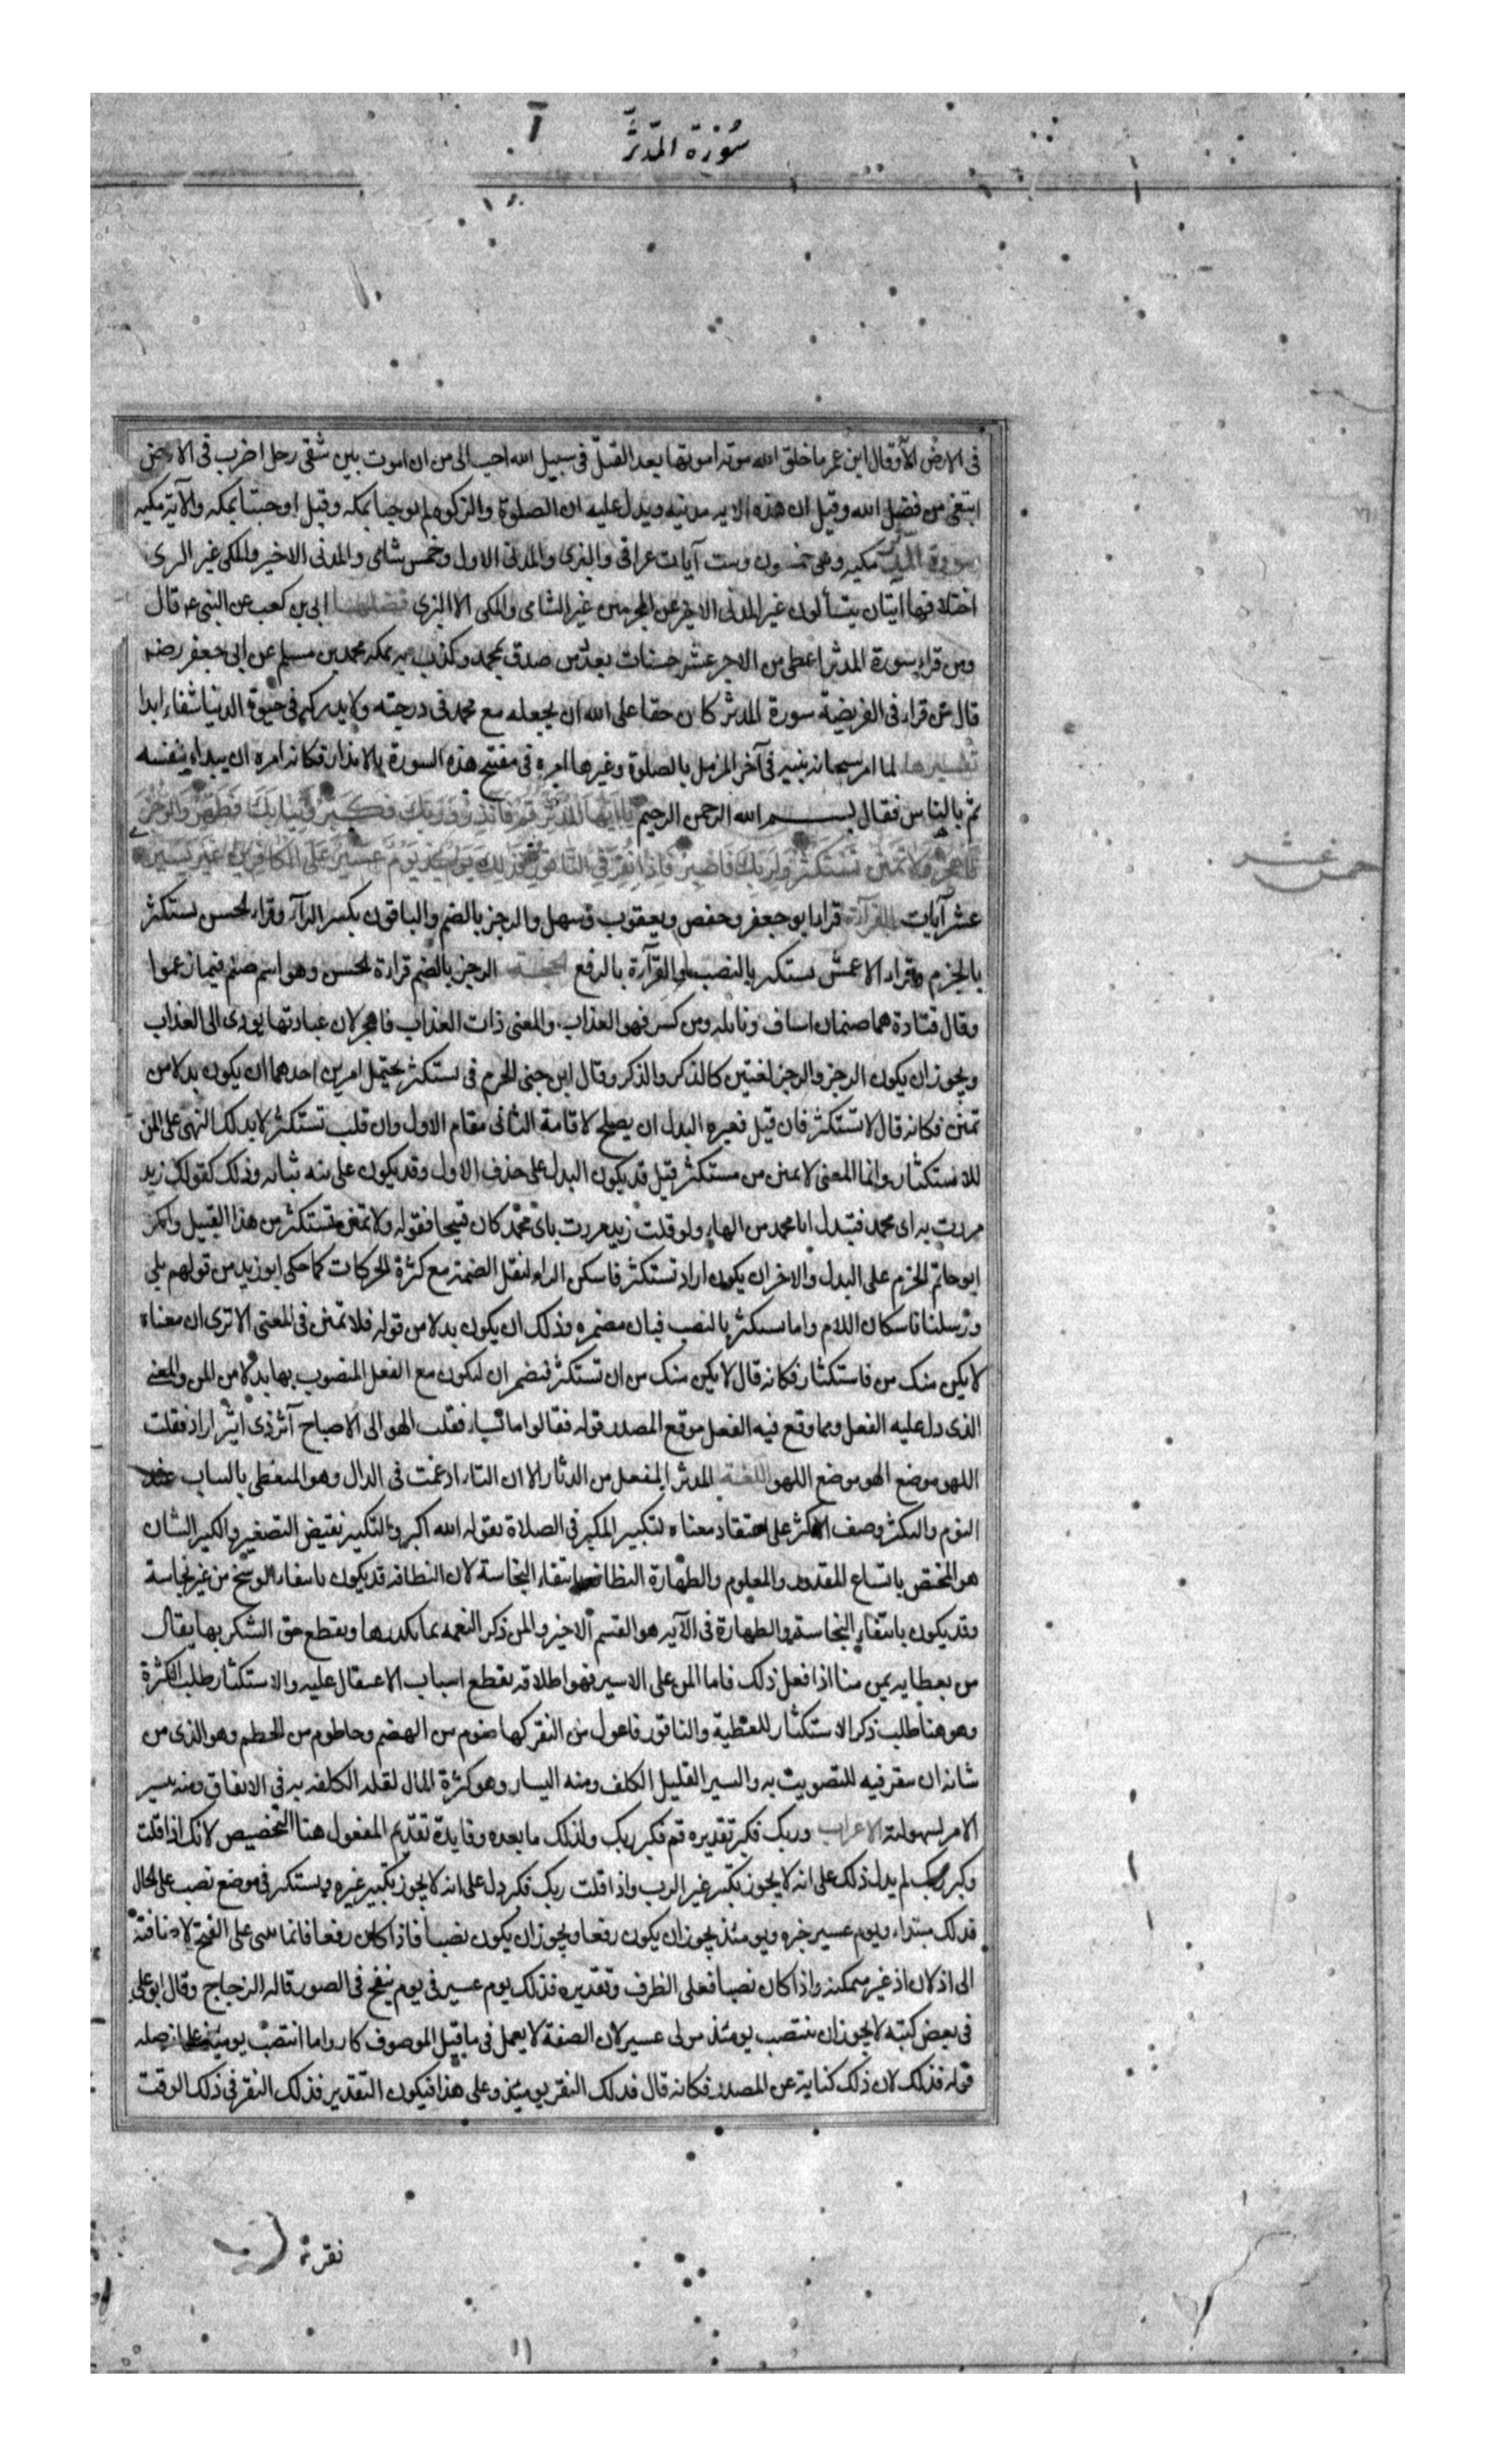 سورة المدثر
فى الارض الآ وقال ابن عمر ما خلق الله موته اموتها بعد القتل فى سبيل الله احب الى من ان اموت بين شقى رحل اضرب فى الارض
ابتغى من فضل الله وقيل ان هذه الايه مدنيه ويدل عليه ان الصلوة والزكوة لم يوجبا بمكه وقيل اوجبتا بمكه والآية مكيه
سورة المدثر مكيه وهى خمسون وست آيات عراقى والبزى والمدنى الاول وخمس شامى والمدنى الاخير والمكى غير البزى
اختلافها آيتان يتسألون غير المدنى الاخير عن المجرمين غير الشامى والمكى الا البزى فضلها ابى بن كعب عن النبى ع قال
ومن قراء سورة المدثر اعطى من الاجر عشر حسنات بعدد من صدق بمحمد وكذب به بمكه محمد بن مسلم عن ابى جعفر رضه
قال من قراء فى الفريضة سورة المدثر كان حقا على الله ان يجعله مع محمد فى درجته ولا يدركه فى حيوة الدنيا شقاء ابدا
تفسيرها لما امر سبحانه نبيه فى آخر المزمل بالصلوة وغيرها امره فى مفتتح هذه السورة بالانذار فكانه امره ان يبداء بنفسه
ثم بالناس فقال بسم الله الرحمن الرحيم يا ايها المدثر قم فانذر وربك فكبر وثيابك فطهر والرجز
فاهجر ولا تمنن تستكثر ولربك فاصبر فاذا نقر فى الناقور فذلك يومئذ يوم عسير على الكافرين غير يسير
خمس عشر
عشر آيات القرآءة قرا ابو جعفر وحفص ويعقوب وسهل والرجز بالضم والباقون بكسر الرآء وقراء الحسن تستكثر
بالجزم وقراء الاعمش تستكثر بالنصب والقرآءة بالرفع الحجة الرجز بالضم قراءة الحسن وهو اسم صنم فيما زعموا
وقال قتادة هما صنمان اساف ونائله ومن كسر فهو العذاب والمعنى ذات العذاب فاهجر لان عبادتها يؤدى الى العذاب
ويجوز ان يكون الرجز والرجز لغتين كالذكر والذكر وقال ابن جنى الجزم فى تستكثر يحتمل امرين احدهما ان يكون بدلا من
تمنن فكانه قال لا تستكثر فان قيل فعبرة البدل ان يصلح لاقامة الثانى مقام الاول وان قلت تستكثر لا يدلك النهى على المن
للاستكثار وانما المعنى لا تمنن من مستكثر قيل قد يكون البدل على حذف الاول وقد يكون على نيه ثباته وذلك كقولك زيد
مررت به ابى محمد فتبدل ابا محمد من الهاء ولو قلت زيد مررت بابى محمد كان قبيحا فقوله ولا تمنن تستكثر من هذا القبيل وانكر
ابو حاتم الجزم على البدل والاخر ان يكون اراد تستكثر فاسكن الراء لثقل الضمة مع كثرة الحركات كما حكى ابو زيد من قولهم بلى
ورسلنا باسكان اللام واما تستكثر بالنصب فبان مضمره وذلك ان يكون بدلا من قوله فلا تمنن فى المعنى الا ترى ان معناه
لا يكن منك من فاستكثار فكانه قال لا يكن منك من ان تستكثر فتضمر ان لتكون مع الفعل المنصوب بها بدلا من المن والمعنى
الذى دل عليه الفعل ومما وقع فيه الفعل موقع المصدر قوله فقالوا ما تشاء فقلت الهو الى الاصباح آثر ذى اثير اراد فقلت
اللهو موضع الهو موضع اللهو اللغة المدثر المتفعل من الدثار الا ان التاء ادغمت فى الدال وهو المتغطى بالثياب عند
النوم والتكبر وصف الاكبر على اعتقاد معناه كتكبير المكبر فى الصلاة بقوله الله اكبر والتكبير نقيض التصغير والكبير الشان
هو المختص باتساع المقدور والمعلوم والطهارة النظافة بانتفاء النجاسة لان النظافه قد يكون بانتفاء الوسخ من غير نجاسة
وقد يكون بانتفاء النجاسة والطهارة فى الآيه هو القسم الاخير والمن ذكر النعمه بما يكدرها ويقطع حق الشكر بها يقال
من بعطايه يمن منا اذا فعل ذلك فاما المن على الاسير فهو اطلاقه بقطع اسباب الاعتقال عليه والاستكثار طلب الكثرة
وهو هنا طلب ذكر الاستكثار للعطية والناقور فاعول من النقر كهاضوم من الهضم وحاطوم من الحطم وهو الذى من
شانه ان ينقر فيه للتصويت به واليسير القليل الكلف ومنه اليسار وهو كثرة المال لقله الكلفه به فى الانفاق ومنه يسير
الامر لسهولته الاعراب وربك فكبر تقديره قم فكبر ربك ولذلك ما بعده وفايدة تقديم المفعول هنا التخصيص لانك اذا قلت
وكبر ربك لم يدل ذلك على انه لا يجوز تكبير غير الرب واذا قلت ربك فكبر دل على انه لا يجوز تكبير غيره وتستكثر فى موضع نصب على الحال
فذلك مبتداء ويوم عسير خبره ويومئذ يجوز ان يكون رفعا ويجوز ان يكون نصبا فاذا كان رفعا فانما بنى على الفتح لاضافته
الى اذ لان اذ غير متمكنه واذا كان نصبا فعلى الظرف وتقديره فذلك يوم عسير فى يوم ينفخ فى الصور قاله الزجاج وقال ابو على
فى بعض كتبه لا يجوز ان ينتصب يومئذ بقوله عسير لان الصفة لا يعمل فى ما قبل الموصوف واما انتصب يومئذ على انه صله
قوله فذلك لان ذلك كناية عن المصدر فكانه قال فذلك النقر يومئذ وعلى هذا فيكون التقدير فذلك النقر فى ذلك الوقت
نقر